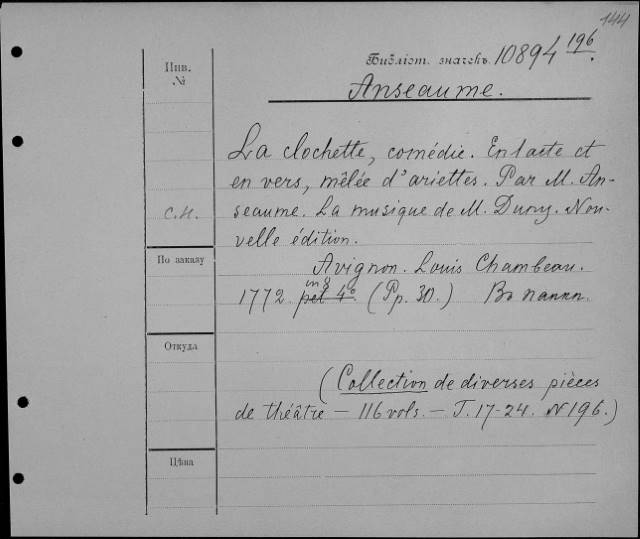 144
Библіот. значекъ 10894 196.
Инв.
№
Anseaume.
La clochette, comédie. En 1 acte et
en vers, mêlée d'ariettes. Par M. An-
с.н. seaume. La musique de M. Duny. Nou-
velle édition.
По заказу
Avignon. Louis Chambeau.
in 8
1772. pet 4° (Pp. 30.) Въ папкѣ.
Откуда
(Collection de diverses pièces
de théâtre — 116 vols. — T. 17-24. N 196.)
Цѣна